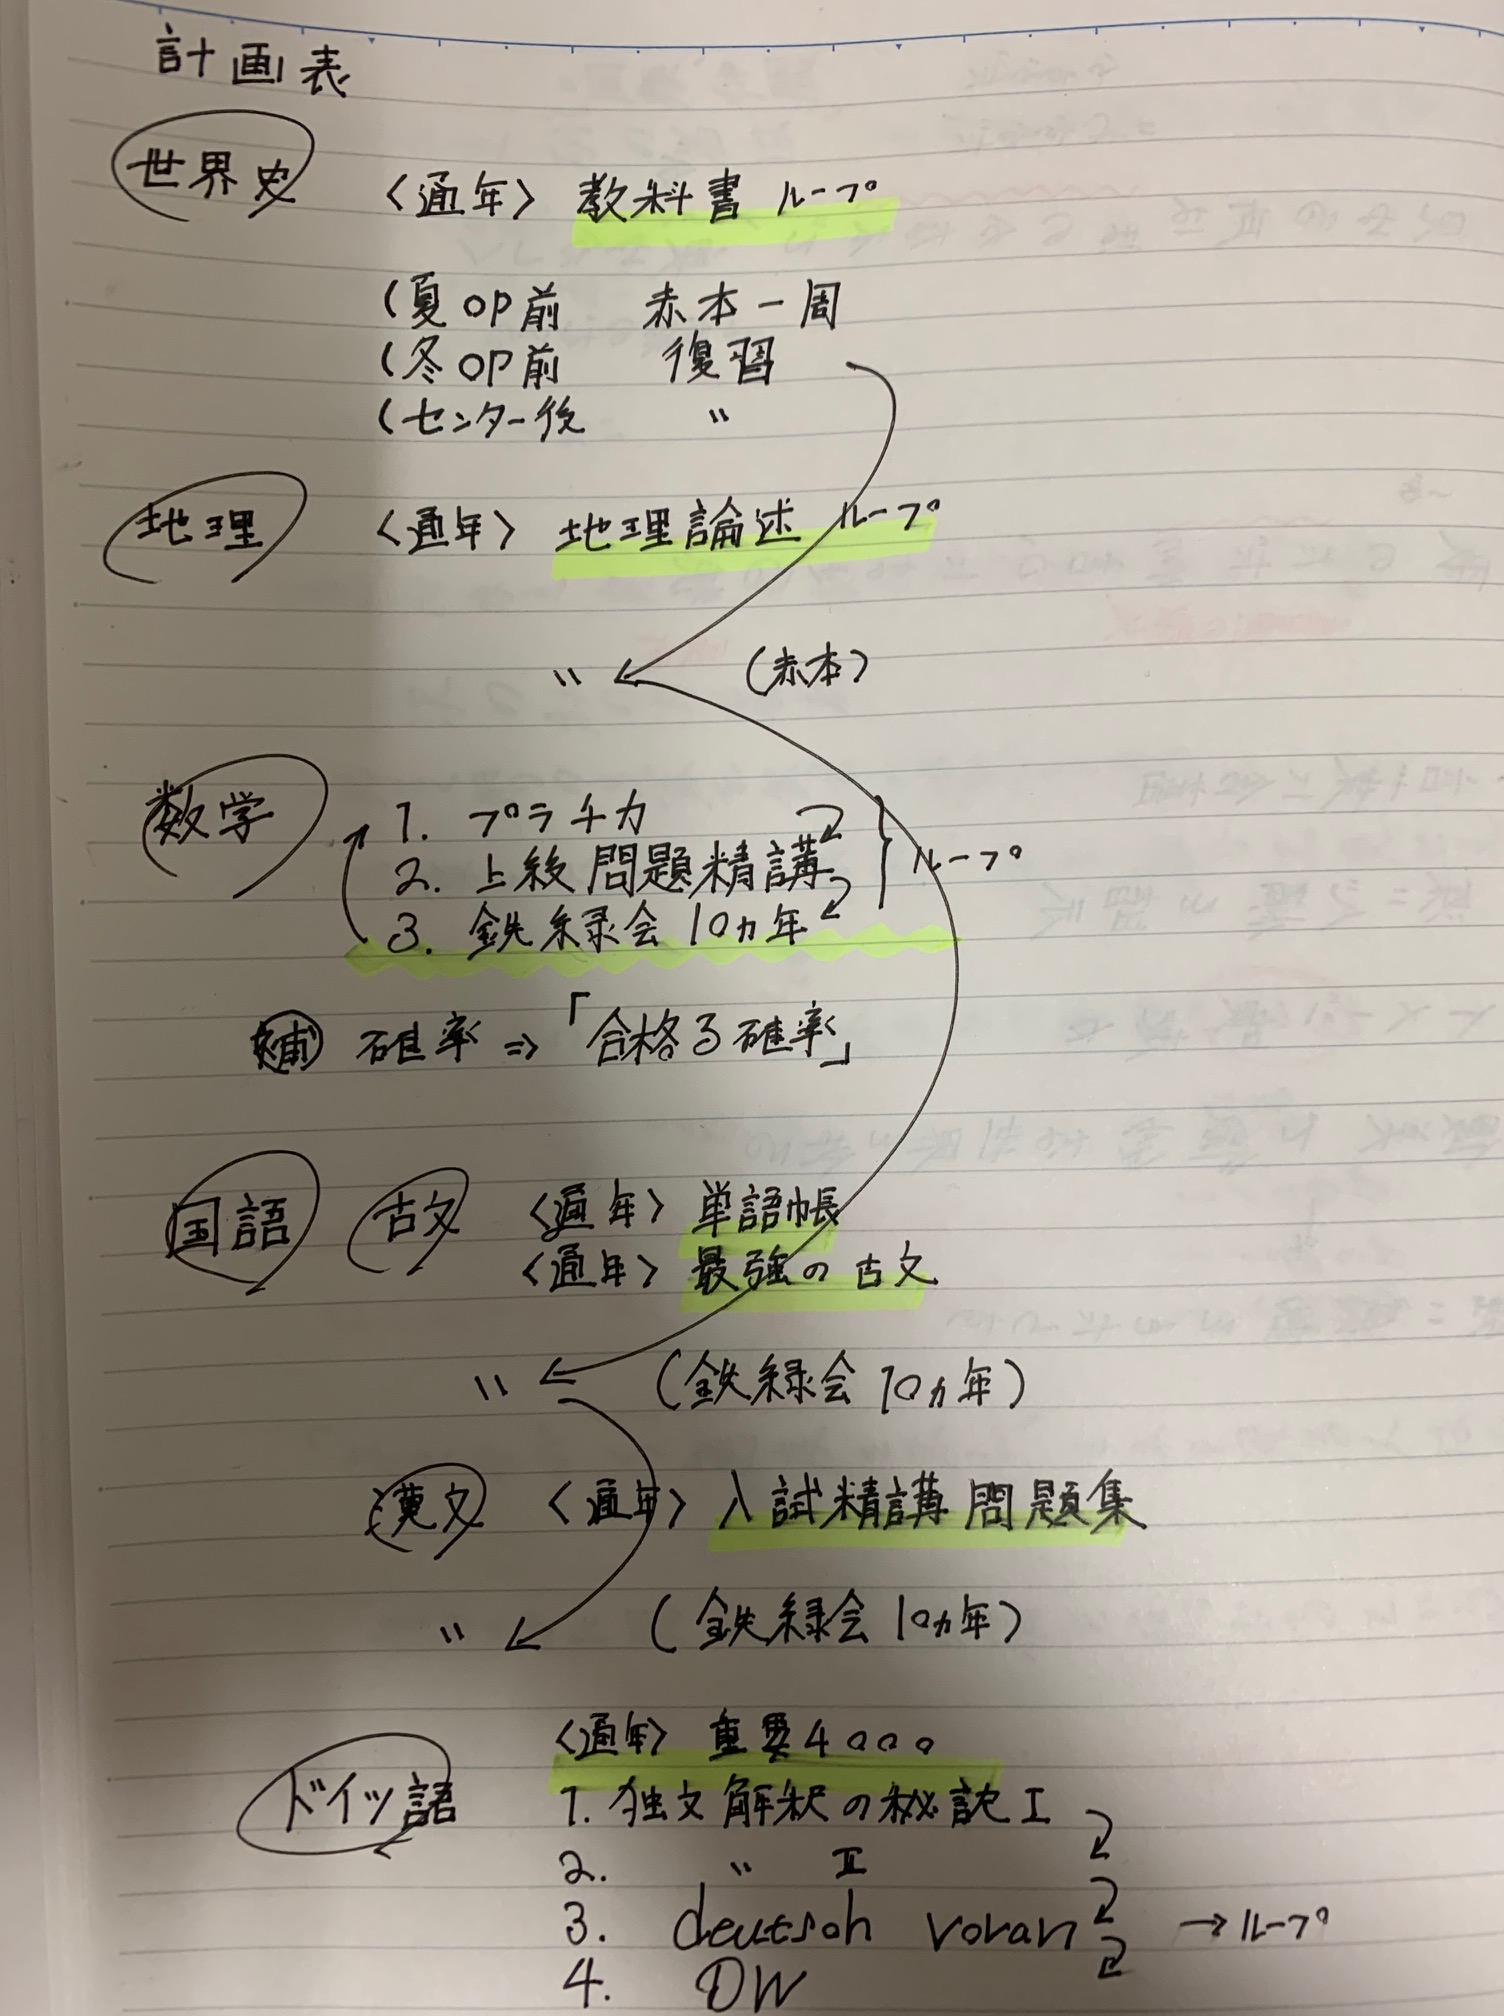 計画表
世界史 〈通年〉 教科書 ループ
(夏op前 赤本一周
(冬op前 復習
(センター後 〃
地理 〈通年〉 地理論述 ループ
〃 (赤本)
数学 1. プラチカ
2. 上級問題精講
3. 鉄緑会10ヵ年
ループ
補 確率 ⇒ 「合格る確率」
国語 古文 〈通年〉 単語帳
〈通年〉 最強の古文
〃 (鉄緑会10ヵ年)
漢文 〈通年〉 入試精講問題集
〃 (鉄緑会10ヵ年)
〈通年〉 重要4000
ドイツ語 1. 独文解釈の秘訣I
2. 〃 II
3. deutsch voran → ループ
4. DW